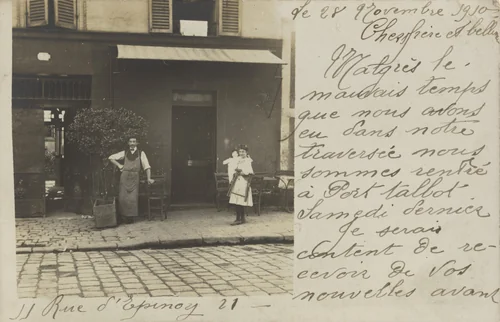 le 28 Novembre 1910
Cher frère et belle
Malgrès le
mauvais temps
que nous avons
eu dans notre
traversée nous
sommes rentré
à Port talbot
Samedi dernier
Je serai
content de re-
cevoir de vos
nouvelles avant
11 Rue d'Epinoy 21 —